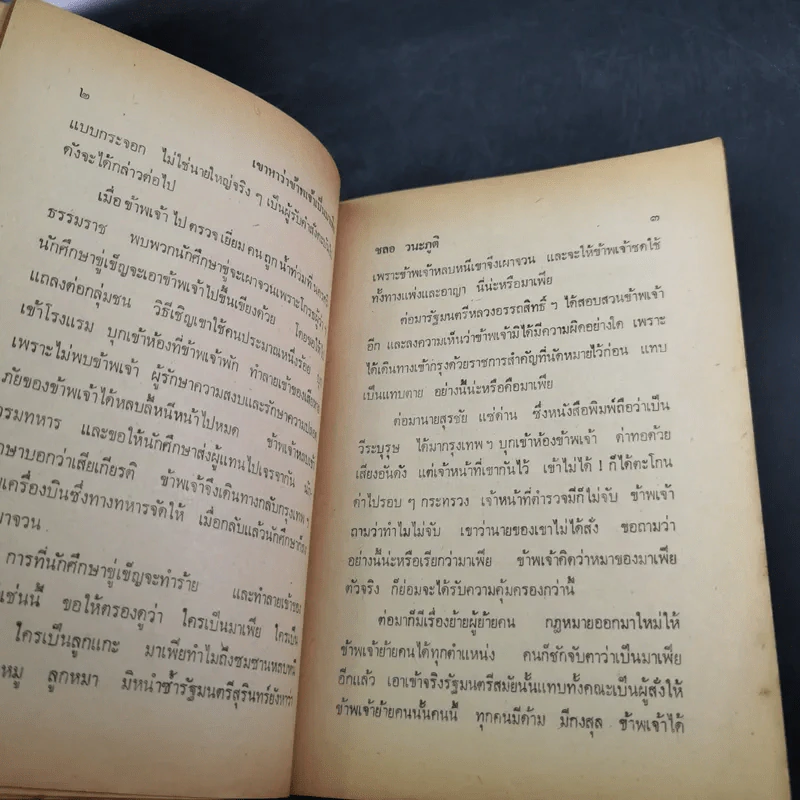 ๒
เขาหาว่าข้าพเจ้าเป็นมาเฟีย
แบบกระจอก ไม่ใช่นายใหญ่จริง ๆ เป็นผู้รับคำสั่ง
ดังจะได้กล่าวต่อไป
เมื่อข้าพเจ้าไปตรวจเยี่ยมคนถูกน้ำท่วมที่นคร
ธรรมราช พบพวกนักศึกษาขู่จะเผาจวนเพราะโกรธผู้ว่า ฯ
นักศึกษาขู่เข็ญจะเอาข้าพเจ้าไปขึ้นเขียงด้วย โดยขอให้ไป
แถลงต่อกลุ่มชน วิธีเชิญเขาใช้คนประมาณหนึ่งร้อย
เข้าโรงแรม บุกเข้าห้องที่ข้าพเจ้าพัก ทำลายเข้าของเสียหาย
เพราะไม่พบข้าพเจ้า ผู้รักษาความสงบและรักษาความปลอด
ภัยของข้าพเจ้าได้หลบลี้หนีหน้าไปหมด ข้าพเจ้าหลบเข้า
กรมทหาร และขอให้นักศึกษาส่งผู้แทนไปเจรจากัน
บอกว่าเสียเกียรติ ข้าพเจ้าจึงเดินทางกลับกรุงเทพฯ
เครื่องบินซึ่งทางทหารจัดให้ เมื่อกลับแล้วนักศึกษาก็
เผาจวน
การที่นักศึกษาขู่เข็ญจะทำร้าย และทำลายเข้าของ
เช่นนี้ ขอให้ตรองดูว่า ใครเป็นมาเฟีย ใครเป็น
ใครเป็นลูกแกะ มาเฟียทำไมถึงซมซานหลบหนี
หมู ลูกหมา มิหนำซ้ำรัฐมนตรีสุรินทร์ยังหาว่า
๓
ชลอ วนะภูติ
เพราะข้าพเจ้าหลบหนีเขาจึงเผาจวน และจะให้ข้าพเจ้าชดใช้
ทั้งทางแพ่งและอาญา นี่น่ะหรือมาเฟีย
ต่อมารัฐมนตรีหลวงอรรถสิทธิ์ ฯ ได้สอบสวนข้าพเจ้า
อีก และลงความเห็นว่าข้าพเจ้ามิได้มีความผิดอย่างใด เพราะ
ได้เดินทางเข้ากรุงด้วยราชการสำคัญที่นัดหมายไว้ก่อน แทบ
เป็นแทบตาย อย่างนี้น่ะหรือคือมาเฟีย
ต่อมานายสุรชัย แซ่ด่าน ซึ่งหนังสือพิมพ์ถือว่าเป็น
วีระบุรุษ ได้มากรุงเทพฯ บุกเข้าห้องข้าพเจ้า ด่าทอด้วย
เสียงอันดัง แต่เจ้าหน้าที่เขากันไว้ เข้าไม่ได้ ! ก็ได้ตะโกน
ด่าไปรอบ ๆ กระทรวง เจ้าหน้าที่ตำรวจมีก็ไม่จับ ข้าพเจ้า
ถามว่าทำไมไม่จับ เขาว่านายของเขาไม่ได้สั่ง ขอถามว่า
อย่างนี้น่ะหรือเรียกว่ามาเฟีย ข้าพเจ้าคิดว่าหมาของมาเฟีย
ตัวจริง ก็ย่อมจะได้รับความคุ้มครองกว่านี้
ต่อมาก็มีเรื่องย้ายผู้ย้ายคน กฎหมายออกมาใหม่ให้
ข้าพเจ้าย้ายคนได้ทุกตำแหน่ง คนก็ชักจับตาว่าเป็นมาเฟีย
อีกแล้ว เอาเข้าจริงรัฐมนตรีสมัยนั้นแทบทั้งคณะเป็นผู้สั่งให้
ข้าพเจ้าย้ายคนนั้นคนนี้ ทุกคนมีด้าม มีกงสุล ข้าพเจ้าได้